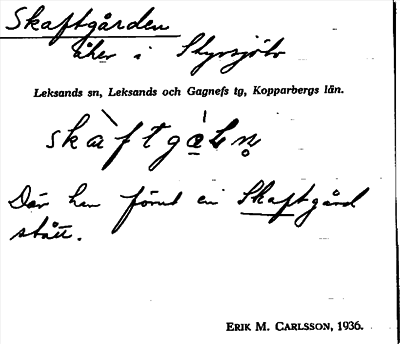 Skaftgården
åker i Styrsjöbo
Leksands sn, Leksands och Gagnefs tg, Kopparbergs län.
skàftgæ̲Ln̥
Där har förut en Skaftgård
stått.
ERIK M. CARLSSON, 1936.